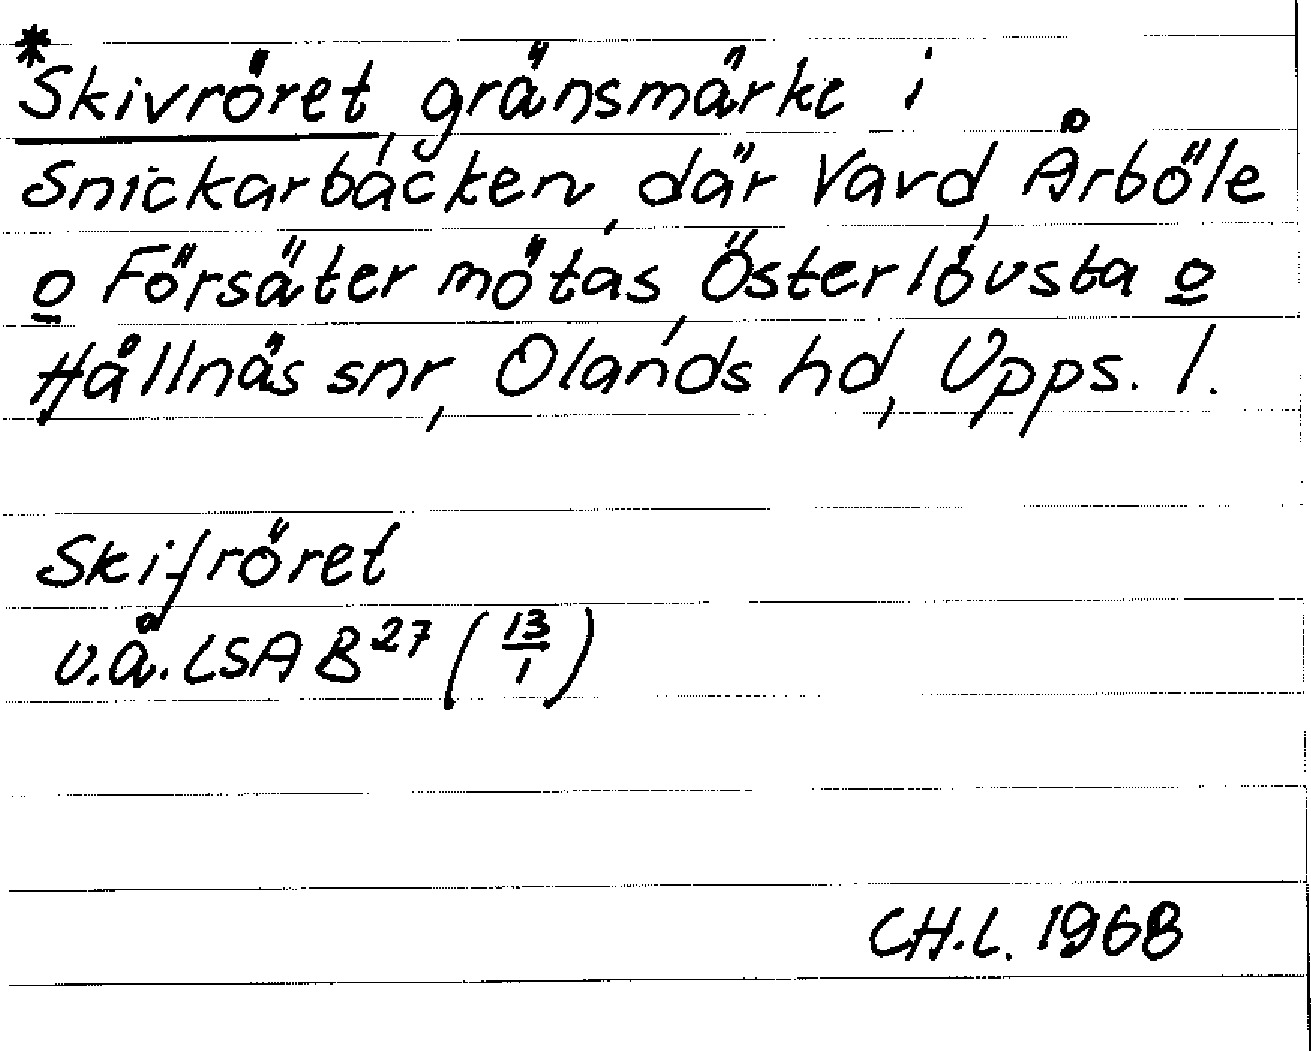 *Skivröret, gränsmärke i
Snickarbäcken, där Vavd, Årböle
o Försäter mötas, Österlövsta o
Hållnäs snr, Olands hd, Upps. l.
Skifröret
u.å. LSA B27 (13/1)
CH.L. 1968